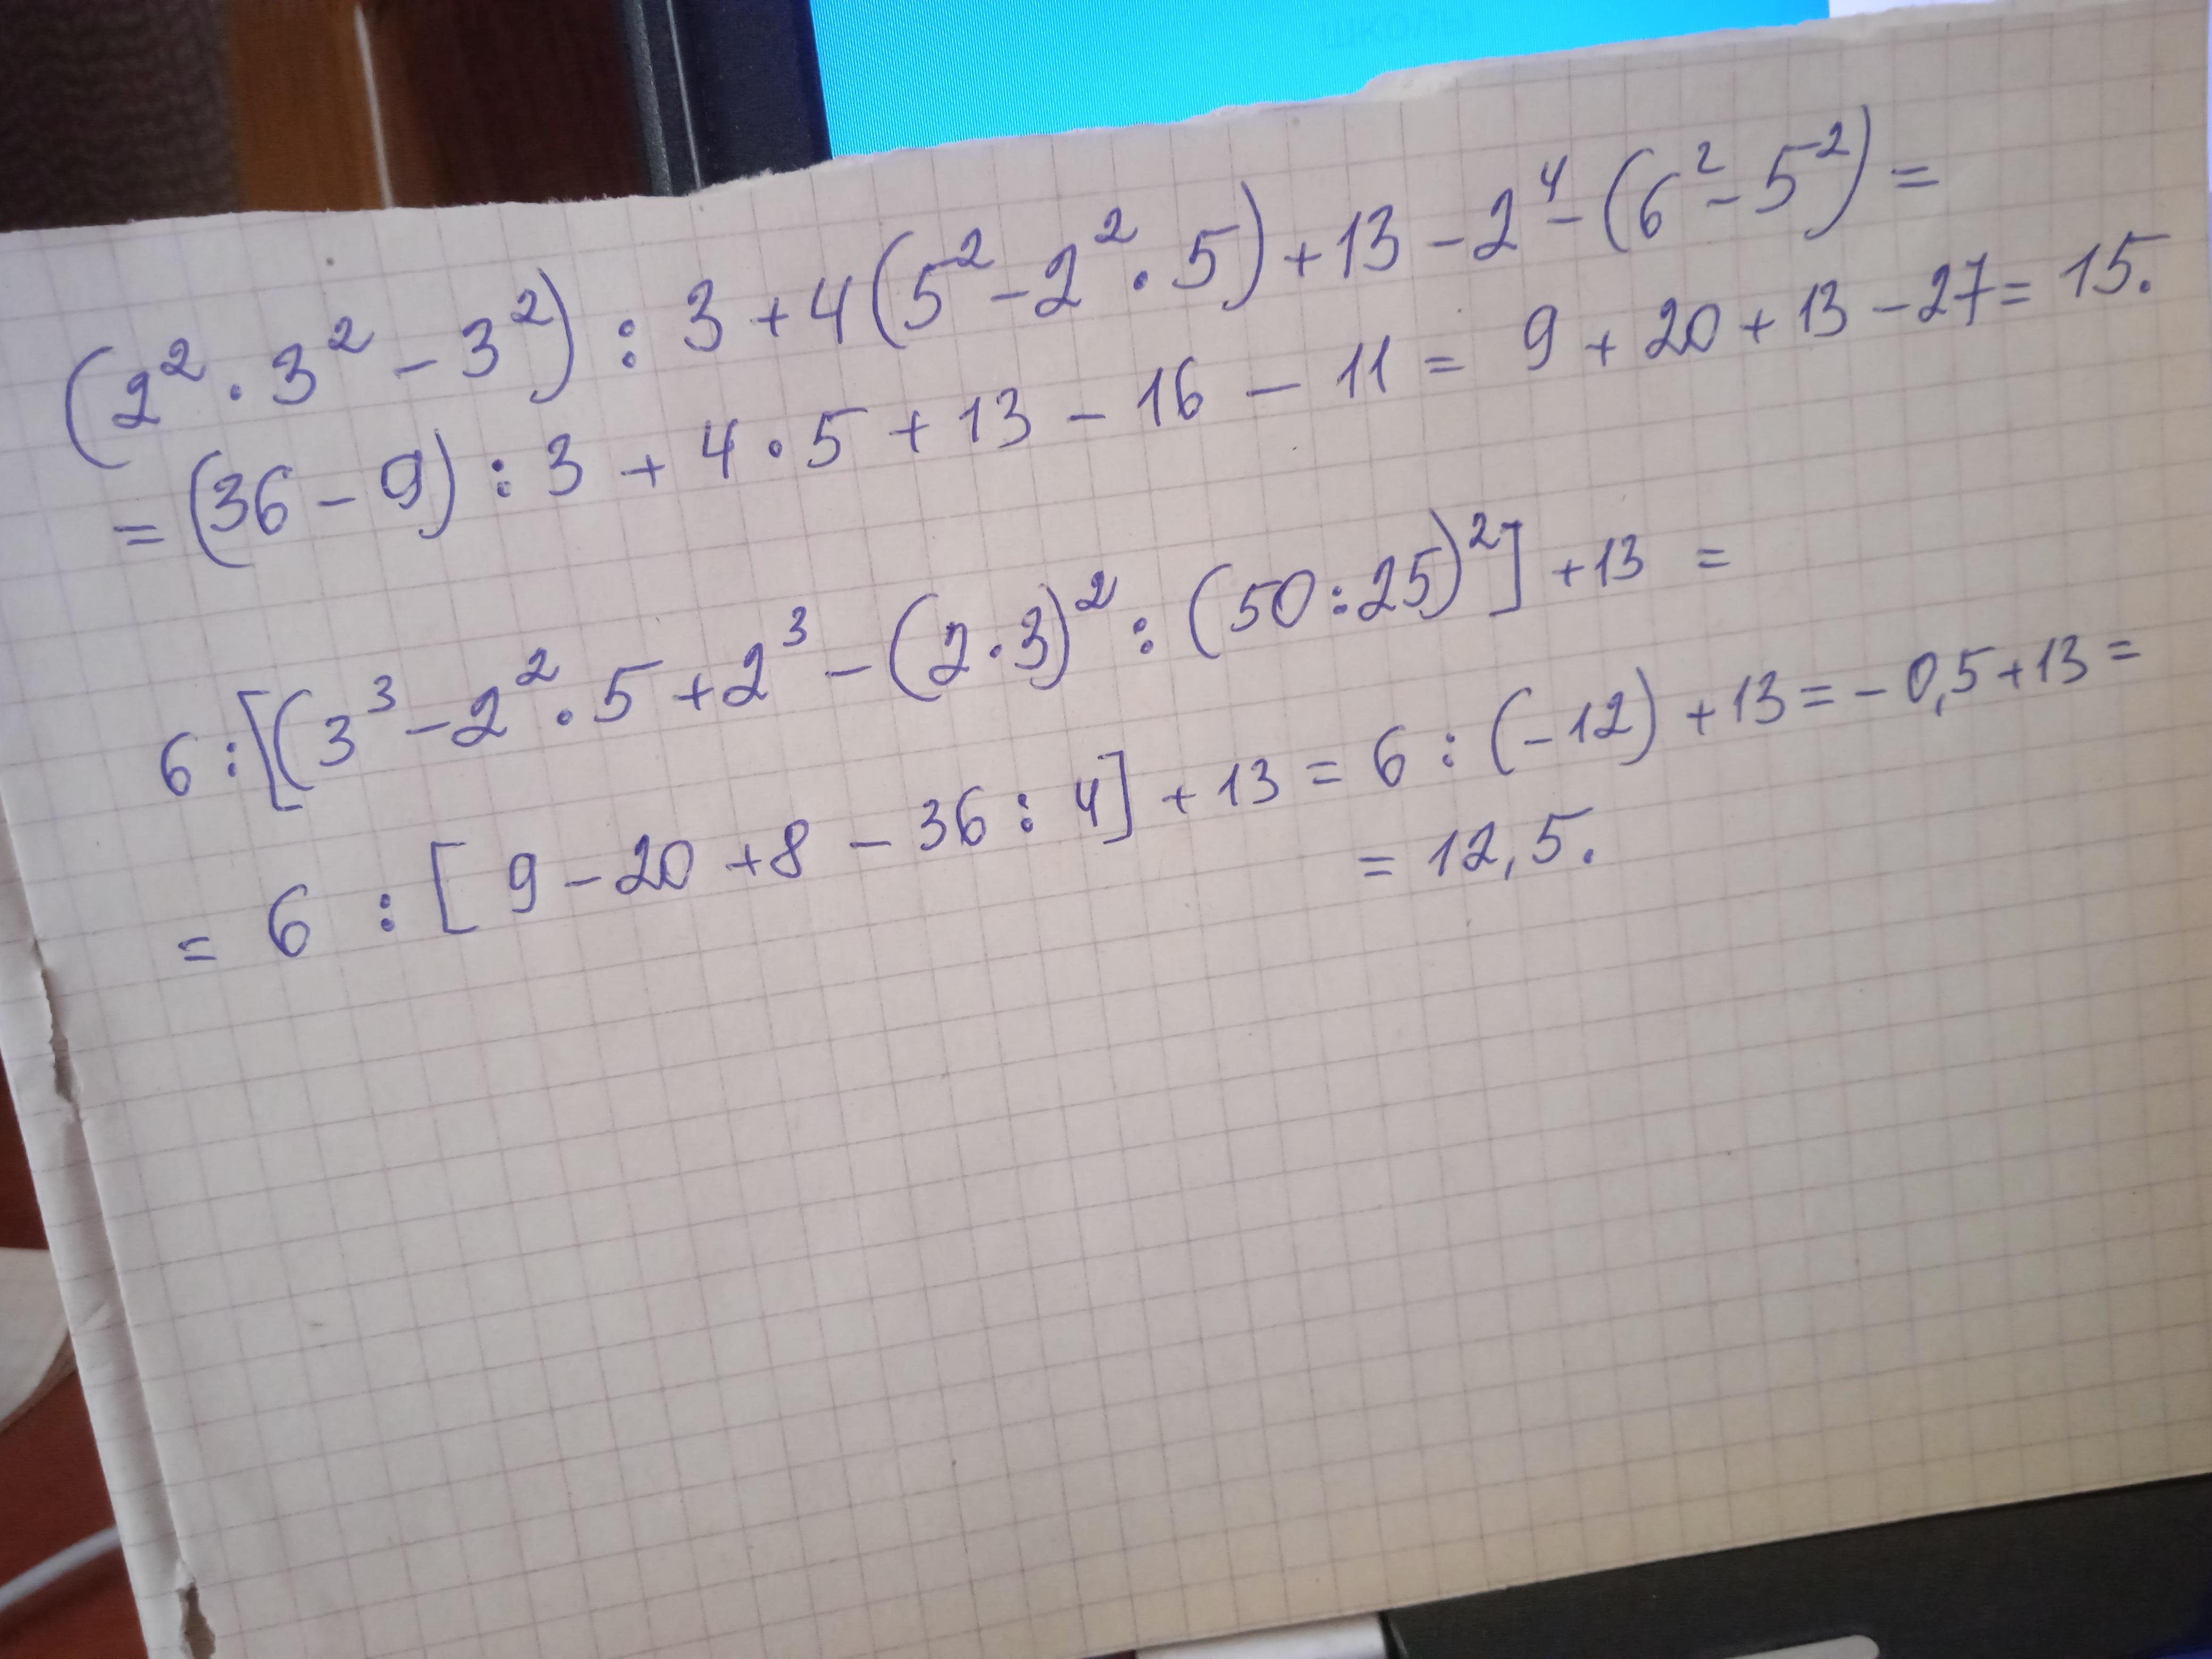 школы
(2² · 3² − 3²) : 3 + 4(5² − 2² · 5) + 13 − 2⁴ − (6² − 5²) =
= (36 − 9) : 3 + 4 · 5 + 13 − 16 − 11 = 9 + 20 + 13 − 27 = 15.
6 : [(3³ − 2² · 5 + 2³ − (2 · 3)² : (50 : 25)²] + 13 =
= 6 : [ 9 − 20 + 8 − 36 : 4] + 13 = 6 : (−12) + 13 = − 0,5 + 13 =
= 12,5.